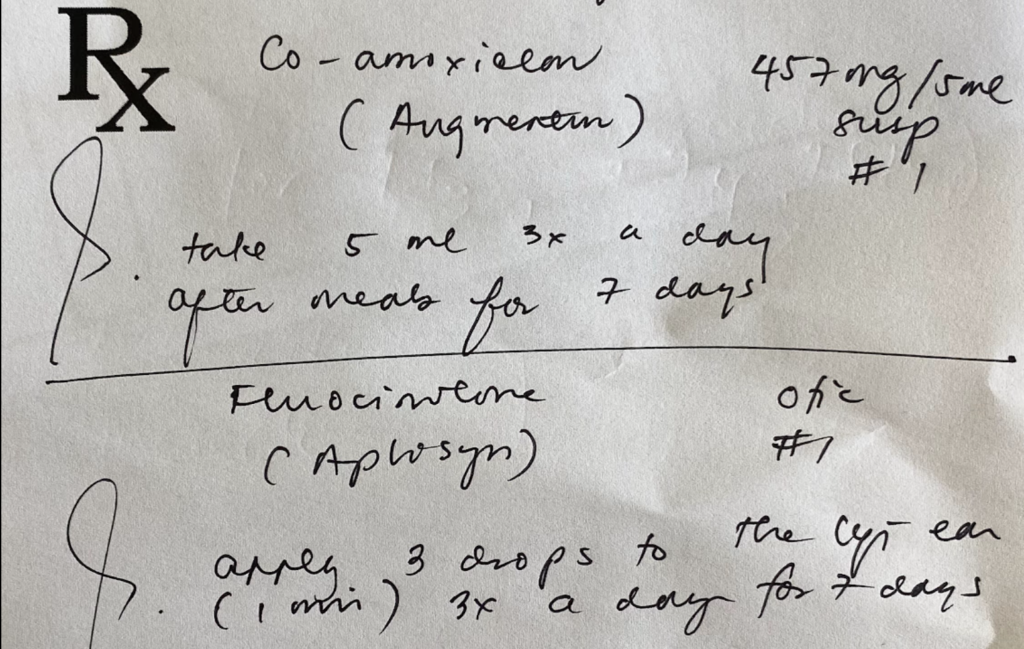 Rx
Co-amoxiclav 457mg/5ml
(Augmentin) susp
#1
take 5 ml 3x a day
after meals for 7 days
Fluocinolone otic
(Aplosyn) #1
apply 3 drops to the left ear
(1 min) 3x a day for 7 days